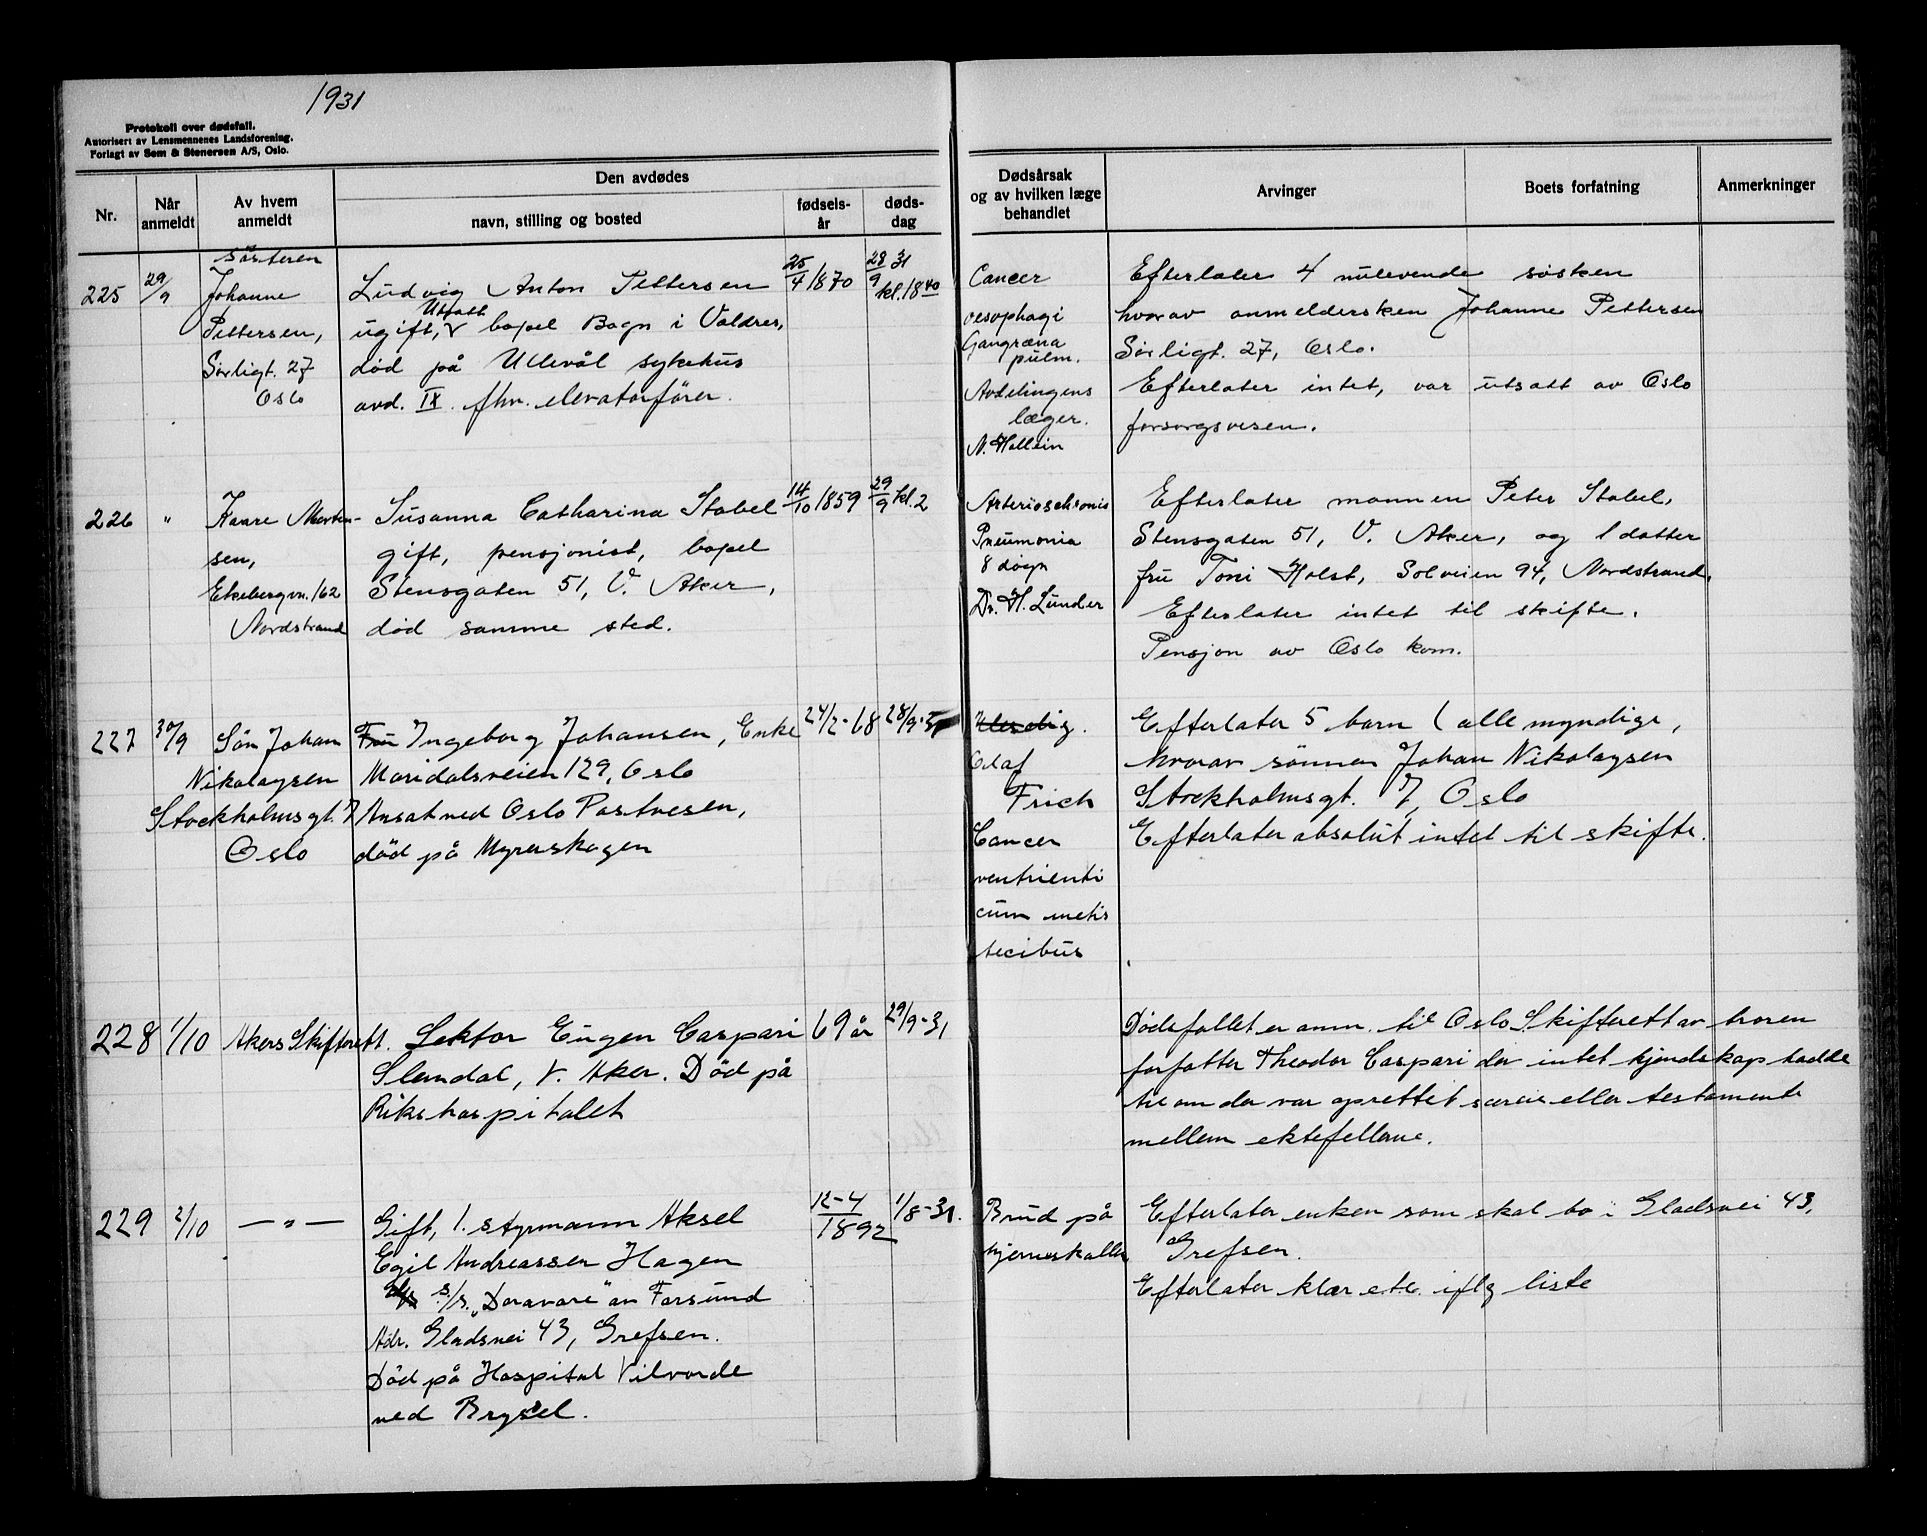 1931
Protokoll over dødsfall.
Autorisert av Lensmennenes Landsforening.
Forlagt av Sem & Stenersen A/S, Oslo.
Nr.
Når anmeldt
Av hvem anmeldt
Den avdødes
navn, stilling og bosted
fødsels-år
døds-dag
Dødsårsak og av hvilken læge behandlet
Arvinger
Boets forfatning
Anmerkninger
225
29/9
Søsteren
Johanne
Pettersen,
Sørligt. 27
Oslo
Ludvig Anton Pettersen
Utsatt
ugift, v bopel Bagn i Valdres,
død på Ullevål sykehus
avd. IX. fhv. elevatorfører.
25/4 1870
28/9 31
kl. 18 40
Cancer
oesophagi
Gangræna
pulm.
Avdelingens
læger.
N. Hallein
Efterlater 4 nulevende søsken
hvorav anmeldersken Johanne Pettersen
Sørligt. 27, Oslo.
Efterlater intet, var utsatt av Oslo
forsorgsvesen.
226
"
Kaare Morten-
sen,
Ekebergvn. 162
Nordstrand
Susanna Catharina Stabel
gift, pensjonist, bopel
Stensgaten 51, V. Aker,
død samme sted.
14/10 1859
29/9 kl. 2
Arterioschronis
Pneumonia
8 døgn
Dr. H. Lunder
Efterlater mannen Peter Stabel,
Stensgaten 51, V. Aker, og 1 datter
fru Toni Holst, Solveien 94, Nordstrand.
Efterlater intet til skifte.
Pensjon av Oslo kom.
227
30/9
Sön Johan
Nikolaysen
Stockholmsgt. 7
Oslo
Fru Ingeborg Johansen, Enke
Maridalsveien 129, Oslo
Ansat ved Oslo Postvesen,
död på Myrerskogen
24/2-68
28/9-31
Olaf
Frich
Cancer
ventrienti
cum metis
tecibus
Efterlater 5 barn (alle myndige,
hvorav sönnen Johan Nikolaysen
Stockholmsgt. 7, Oslo
Efterlater absolut intet til skifte.
228
1/10
Akers Skifterett.
Lektor Eugen Caspari
Slemdal, V. Aker. Död på
Rikshospitalet
69 år
29/9-31
Dödsfallet er anm. til Oslo Skifterett av broren
forfatter Theodor Caspari der intet kjendskap hadde
til om der var oprettet særeie eller testamente
mellem ektefellerne.
229
2/10
— " —
Gift, 1. styrmann Aksel
Egil Andreassen Hagen
s/s. "Doravore" av Farsund
Adr. Gladsvei 43, Grefsen.
Död på Hospital Vilvorde
ved Bryssel.
12-4
1892
1/8-31.
Brud på
hjerneskallen
Efterlater enken som skal bo i Gladsvei 43,
Grefsen.
Efterlater klær etc. iflg liste